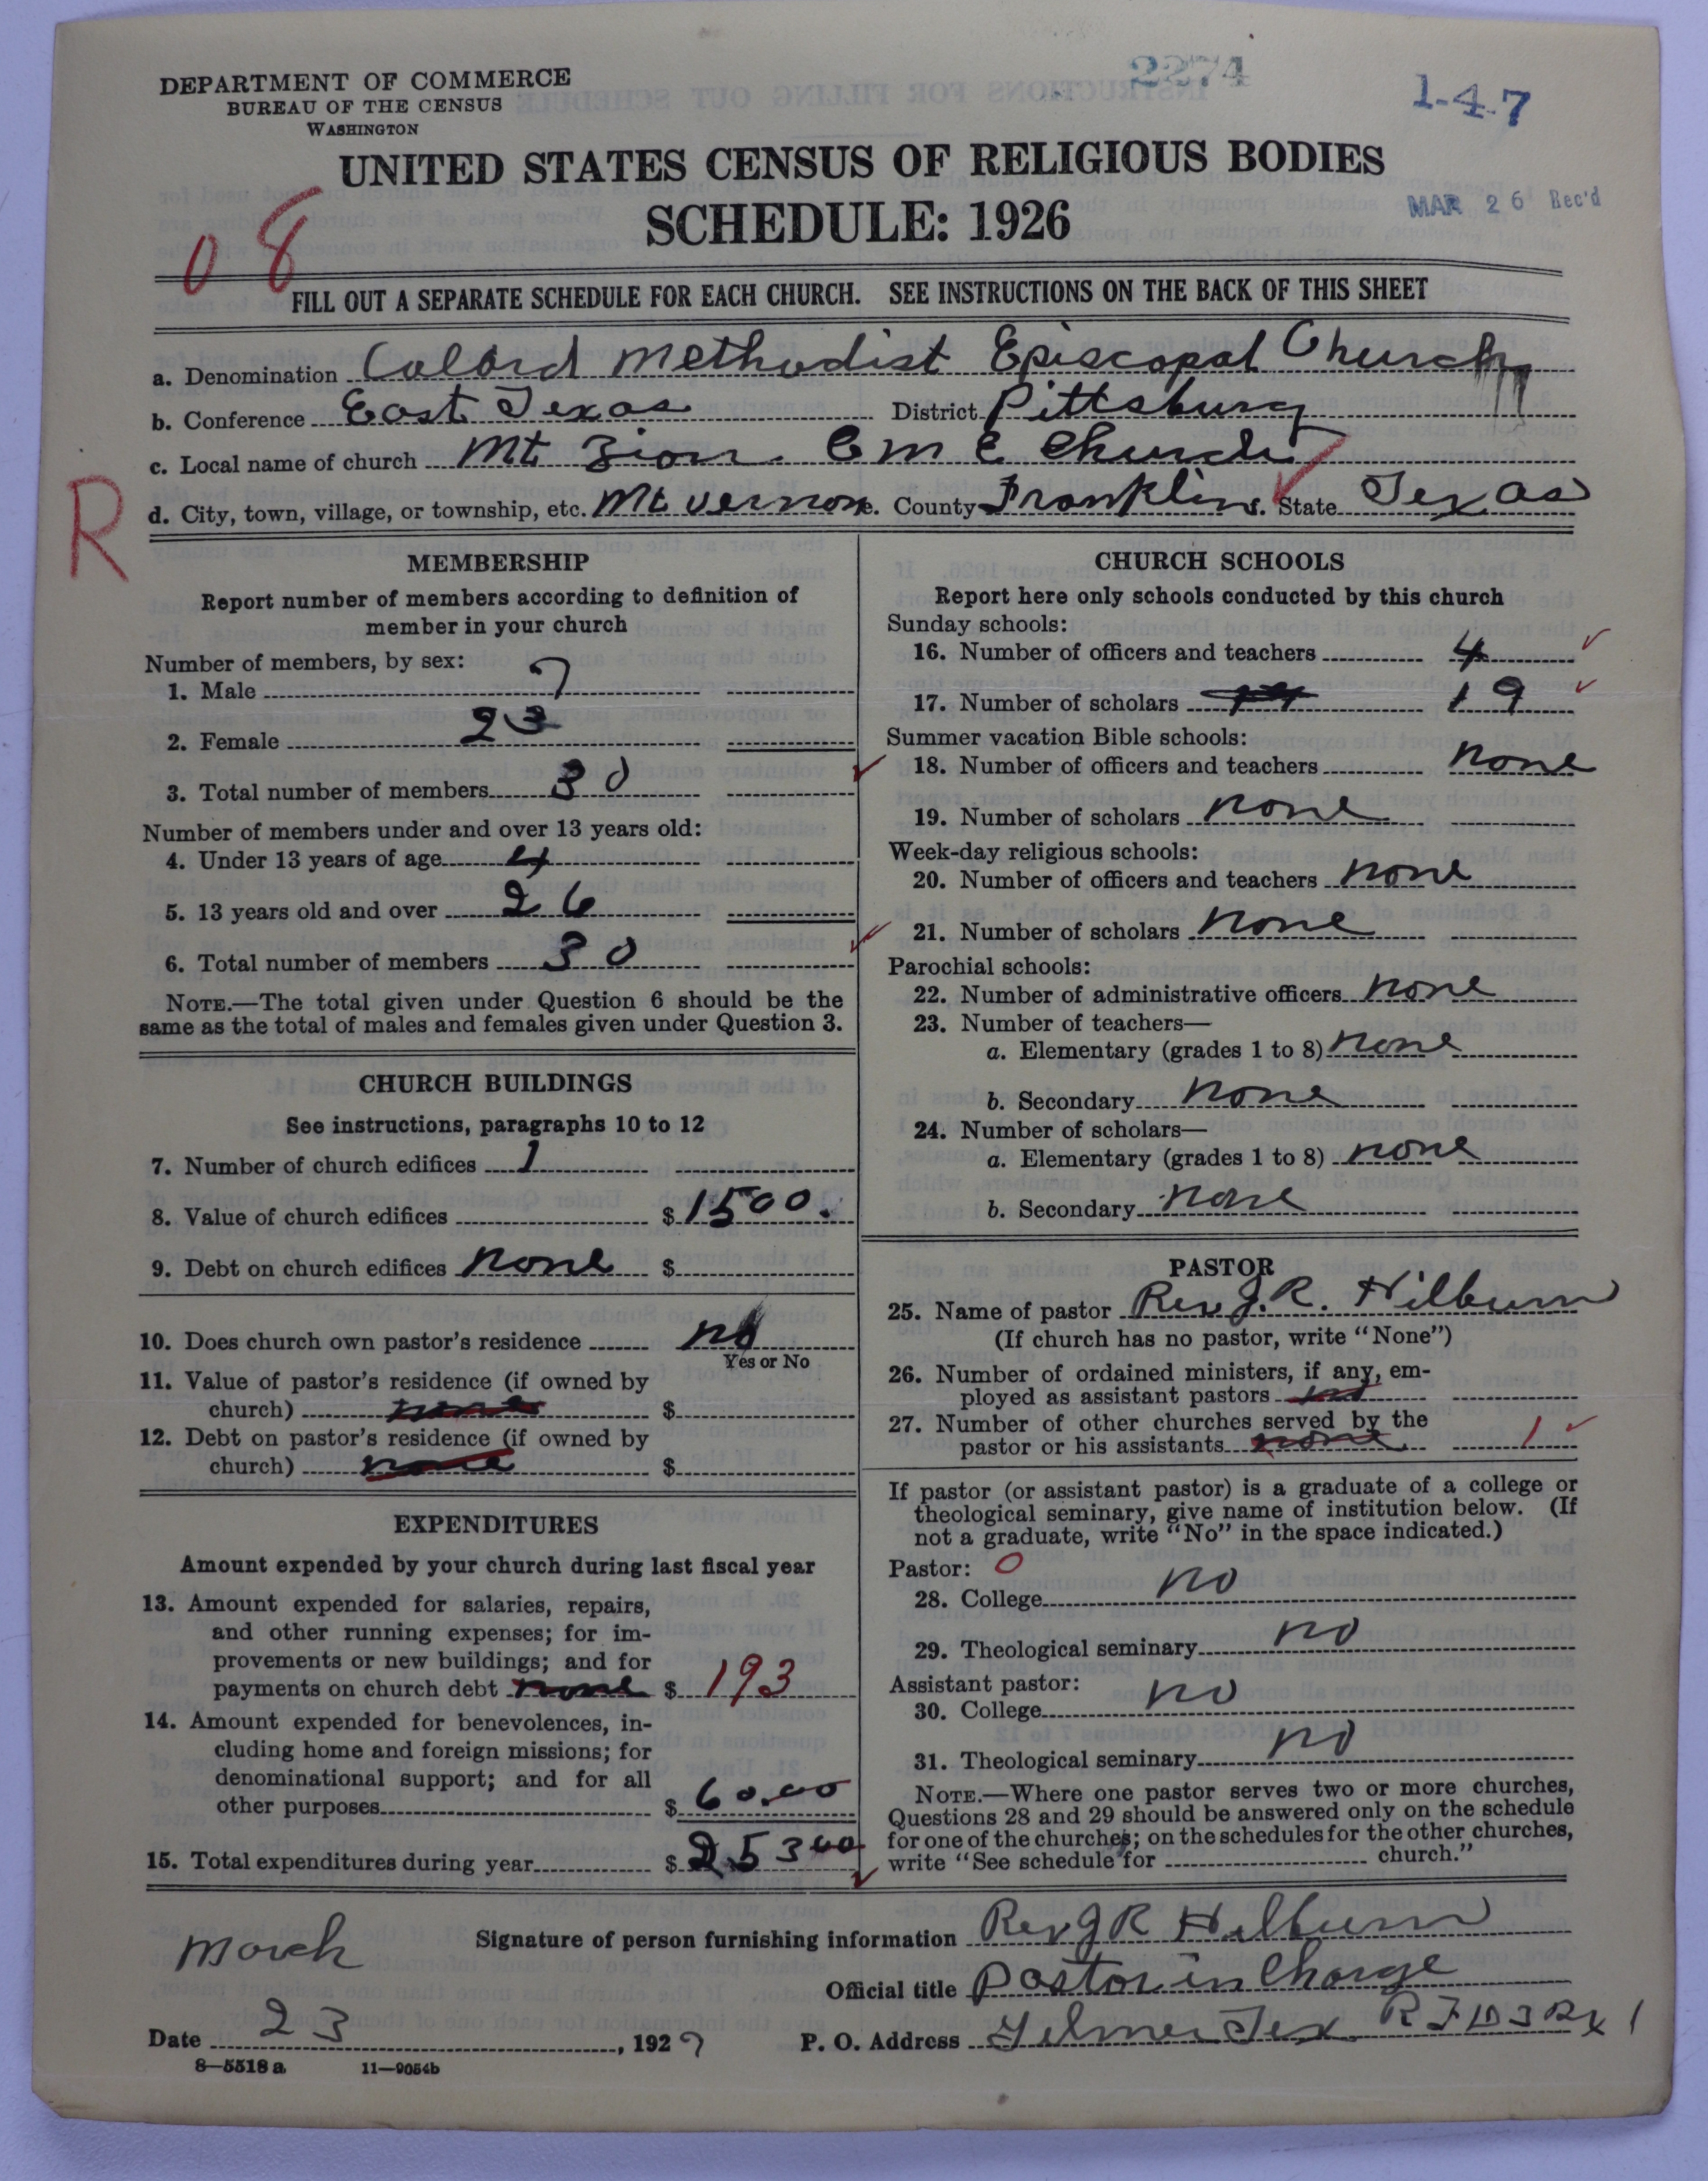 2274
1-4-7
DEPARTMENT OF COMMERCE
BUREAU OF THE CENSUS
WASHINGTON
UNITED STATES CENSUS OF RELIGIOUS BODIES
SCHEDULE: 1926
MAR 26 Rec'd
08
FILL OUT A SEPARATE SCHEDULE FOR EACH CHURCH. SEE INSTRUCTIONS ON THE BACK OF THIS SHEET
a. Denomination Colord Methodist Episcopal Church
b. Conference East Texas District Pittsburg
c. Local name of church Mt Zion C M E Church
R
d. City, town, village, or township, etc. Mt Vernon. County Franklin. State Texas
MEMBERSHIP
Report number of members according to definition of
member in your church
Number of members, by sex:
1. Male 7
2. Female 23
3. Total number of members 30
Number of members under and over 13 years old:
4. Under 13 years of age 4
5. 13 years old and over 26
6. Total number of members 30
NOTE.—The total given under Question 6 should be the
same as the total of males and females given under Question 3.
CHURCH BUILDINGS
See instructions, paragraphs 10 to 12
7. Number of church edifices 1
8. Value of church edifices $1500.
9. Debt on church edifices none $
10. Does church own pastor's residence no
Yes or No
11. Value of pastor's residence (if owned by
church) none $
12. Debt on pastor's residence (if owned by
church) none $
EXPENDITURES
Amount expended by your church during last fiscal year
13. Amount expended for salaries, repairs,
and other running expenses; for im-
provements or new buildings; and for
payments on church debt none $ 193
14. Amount expended for benevolences, in-
cluding home and foreign missions; for
denominational support; and for all
other purposes $ 60.00
15. Total expenditures during year $ 253 00
CHURCH SCHOOLS
Report here only schools conducted by this church
Sunday schools:
16. Number of officers and teachers 4
17. Number of scholars 19
Summer vacation Bible schools:
18. Number of officers and teachers none
19. Number of scholars none
Week-day religious schools:
20. Number of officers and teachers none
21. Number of scholars none
Parochial schools:
22. Number of administrative officers none
23. Number of teachers—
a. Elementary (grades 1 to 8) none
b. Secondary none
24. Number of scholars—
a. Elementary (grades 1 to 8) none
b. Secondary none
PASTOR
25. Name of pastor Rev J. R. Hilburn
(If church has no pastor, write "None")
26. Number of ordained ministers, if any, em-
ployed as assistant pastors no
27. Number of other churches served by the
pastor or his assistants none 1
If pastor (or assistant pastor) is a graduate of a college or
theological seminary, give name of institution below. (If
not a graduate, write "No" in the space indicated.)
Pastor: 0
28. College no
29. Theological seminary no
Assistant pastor:
30. College no
31. Theological seminary no
NOTE.—Where one pastor serves two or more churches,
Questions 28 and 29 should be answered only on the schedule
for one of the churches; on the schedules for the other churches,
write "See schedule for church."
Signature of person furnishing information Rev J R Hilburn
Official title Pastor in Charge
March
Date 23, 1927 P. O. Address Gilmer Tex R F D 3 Bx 1
8—5518 a 11—9054b